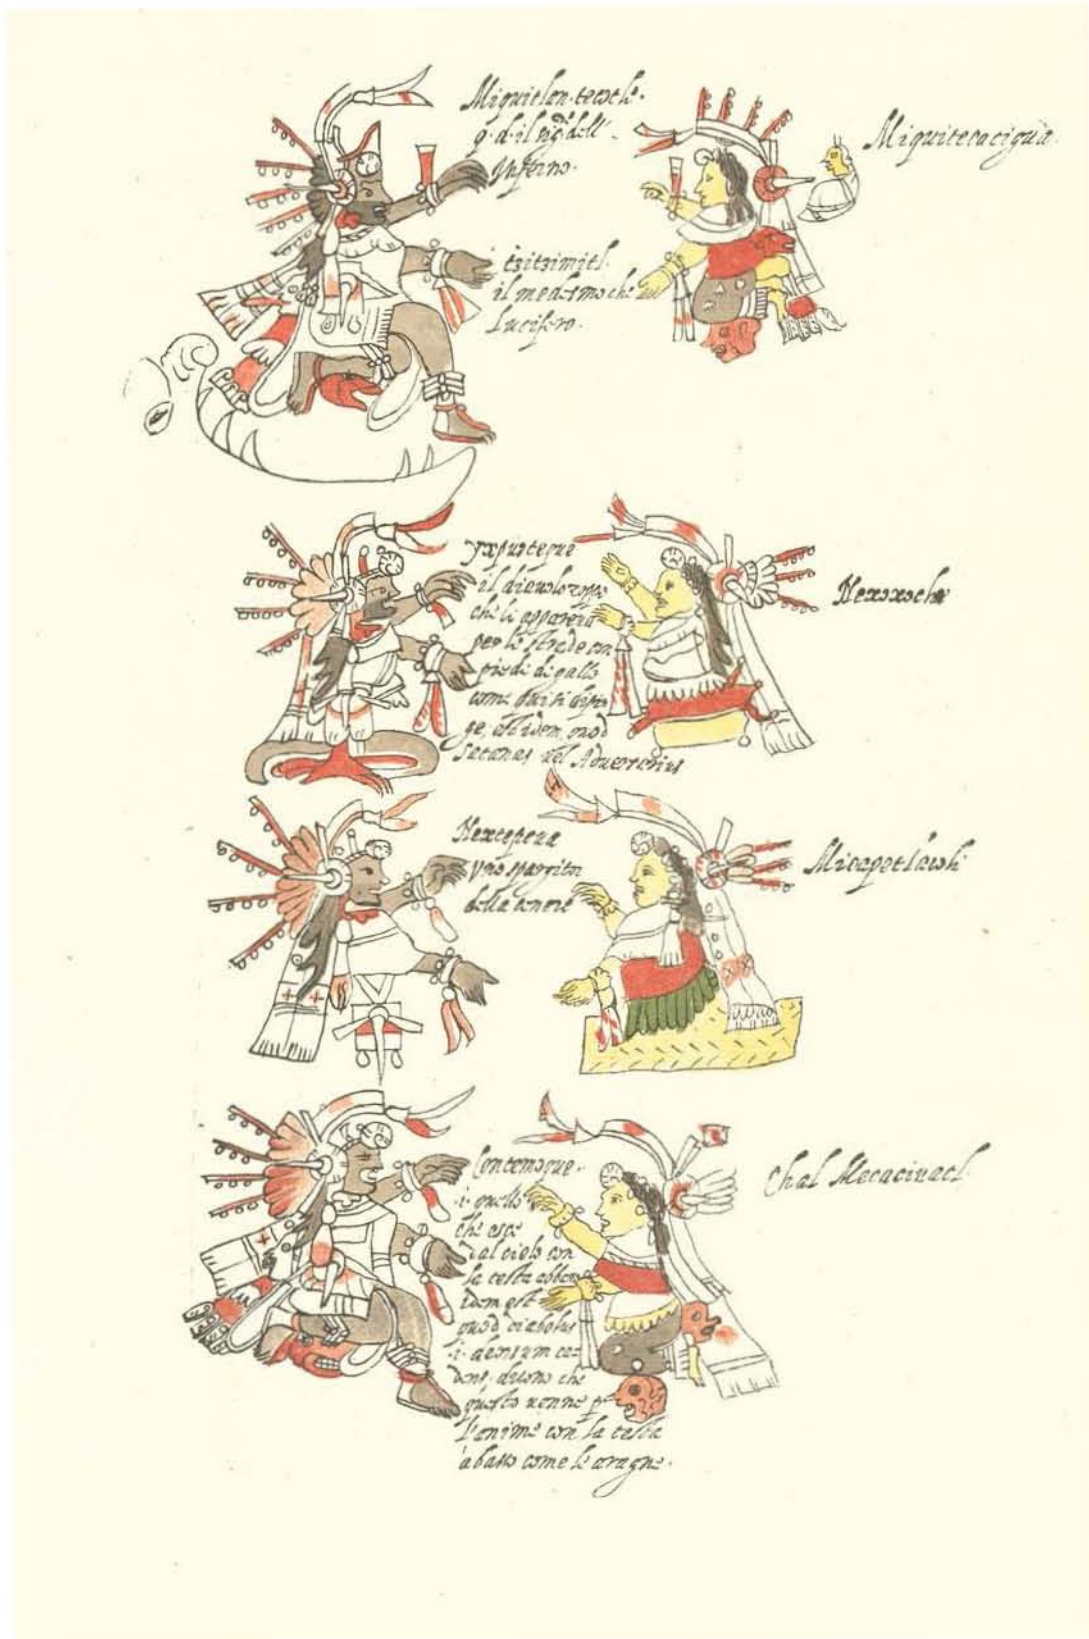 Miquitlan.tecotle.
q. d. il sig.re dell'
Inferno.
Miquitecacigua.
tzitzimitl.
il medesmo che
Lucifero.
yxpuzteque
il diavolo zoppo
che li appareva
per le strade con
piedi di gallo
come
ge, est idem, quod
Satanas vel Adversarius
Nexoxocho
Nextepeua
Uno spargitor
della cenere
Micapetlacoli
Contemoque.
.i. quello
che
dal cielo con
la testa
idem est
quod diabolus
.i. deorsum ce-
dens. dicono che
questo venne p
l'anime con la testa
à basso come le aragne.
Chal Mecacivacl.